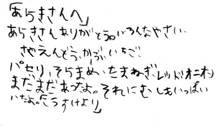 「あらきさんへ」
あらきさんありがとういろんなやさい、
さやえんどう、かぶ、いちご、
パセリ、そらまめ、たまねぎ、レッドオニオン
まだまだあったよ。それにむしもいっぱい
いたよ。たすけより